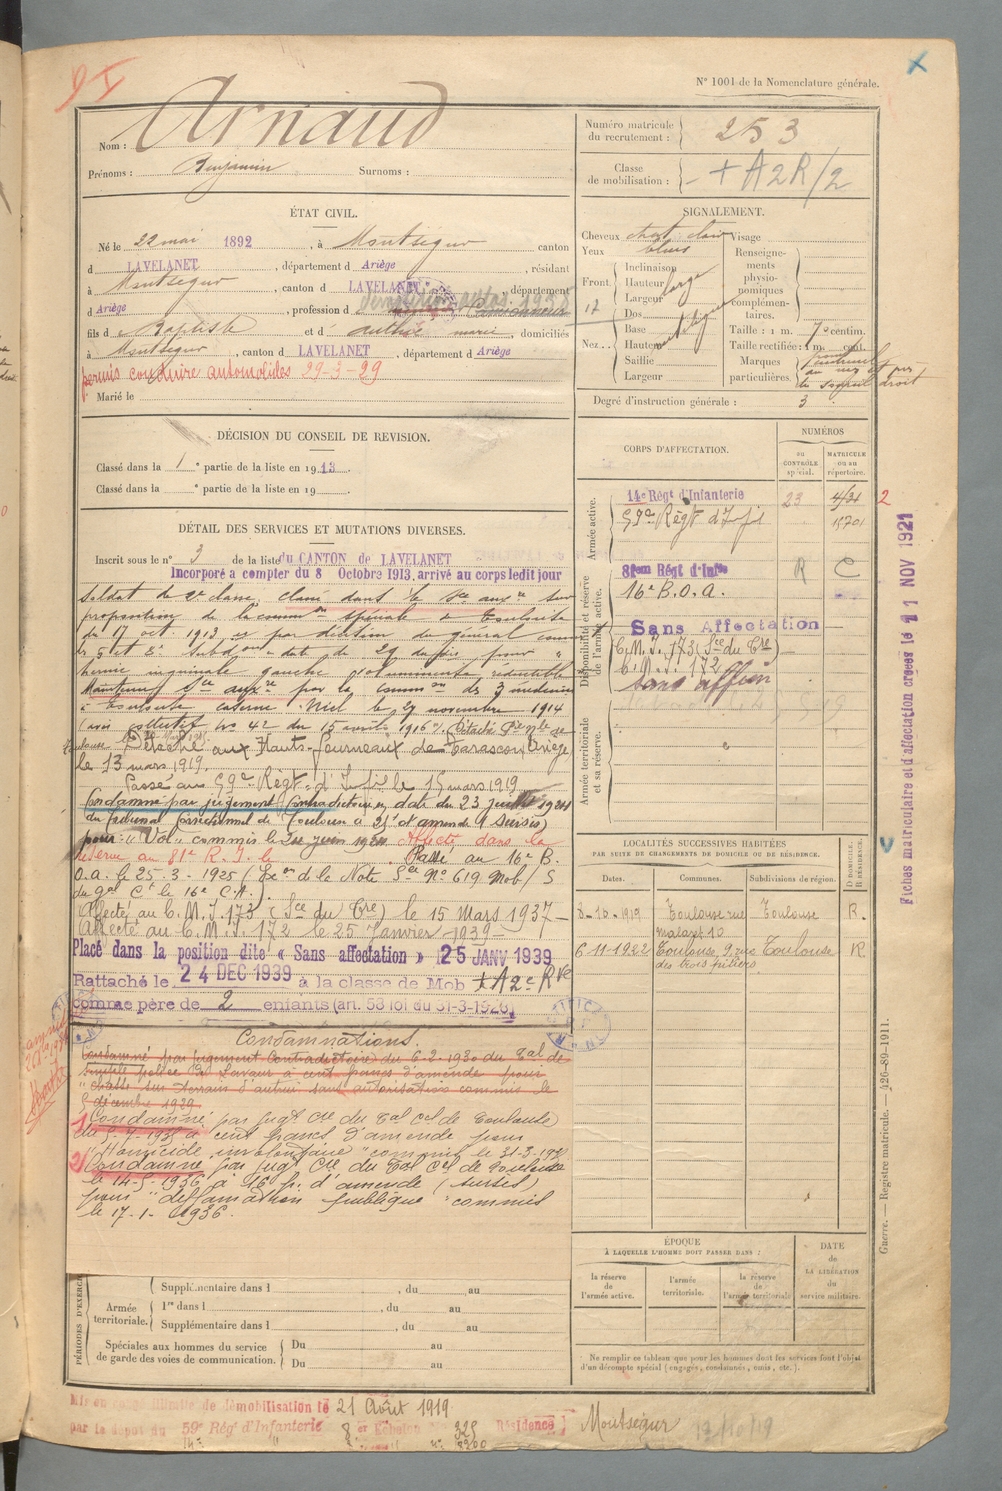 N° 1001 de la Nomenclature générale.
Nom : Arnaud
Prénoms : Benjamin Surnoms :
Numéro matricule du recrutement : 253
Classe de mobilisation : + A2R/2
ÉTAT CIVIL.
Né le 22 mai 1892, à Montségur canton
d LAVELANET, département d Ariège, résidant
à Montségur, canton d LAVELANET, département
d Ariège, profession d
fils d Baptiste et d marie, domiciliés
à Montségur, canton d LAVELANET, département d Ariège
permis conduire automobiles 29-3-29
Marié le
SIGNALEMENT.
Cheveux chat. clair Visage
Yeux bleus
Front. Inclinaison
Hauteur
Largeur large
Nez Dos
Base
Hauteur
Saillie
Largeur
Renseignements physionomiques complémentaires.
Taille : 1 m. 7 centim.
Taille rectifiée : 1 m. cent.
Marques particulières.
Degré d'instruction générale : 3
DÉCISION DU CONSEIL DE REVISION.
Classé dans la 1e partie de la liste en 1913.
Classé dans la e partie de la liste en 19
DÉTAIL DES SERVICES ET MUTATIONS DIVERSES.
Inscrit sous le n° 3 de la liste du CANTON de LAVELANET
Incorporé a compter du 8 Octobre 1913, arrivé au corps ledit jour
soldat de 2e classe. Classé dans le sur
proposition de la spéciale de Toulouse
du 17 oct. 1913 et par décision du général
pour
hernie inguinale gauche volumineuse réductible
Maintenu par la des 3 médecins
à Toulouse caserne Niel le 27 novembre 1914
Détaché aux Hauts-Fourneaux de Tarascon, Ariège
le 13 mars 1919.
Passé au 59e Régt d'Inf le 15 mars 1919
Condamné par jugement Contradictoire en date du 23
du Tribunal Correctionnel de Toulouse à 25f d'amende (sursis)
pour : "Vol" commis le Affecté dans la
réserve au 81e R. I. le Passé au 16e B.
O.a. le 25-3-1925 (Ex on de la Note Sce No 619 Mob/S
du gal Ct le 16e C.A.
Affecté au C.M.I. 173 (Sce du Cre) le 15 Mars 1937-
Affecté au C.M.I. 172 le 25 Janvier 1939-
Placé dans la position dite « Sans affectation » 25 JANV 1939
Rattaché le 24 DEC 1939 à la classe de Mob + A2e Rve
comme père de 2 enfants (art. 58 loi du 31-3-1928)
Condamnations.
Condamné par jugement Contradictoire du 6-2-1930 du Tal de
simple police de Lavaur à cent francs d'amende pour
"chasse sur terrain d'autrui sans autorisation commis le
décembre 1929
1 Condamné par jugt Cre du Tal Cel de Toulouse
du 5-7-1935 à cent francs d'amende pour
"Homicide involontaire" commis le 31-3-
2 Condamné par jugt Cre du Tal Cel de Toulouse
le 14-5-1936 à 16 fr. d'amende (sursis)
pour "diffamation publique" commis
le 17-1-1936.
CORPS D'AFFECTATION.
NUMÉROS
au CONTRÔLE spécial.
MATRICULE ou au répertoire.
Armée active.
14e Régt d'Infanterie 23
59e Régt d'Inf 15701
Disponibilité et réserve de l'armée active.
81em Régt d'Infie R C
16e B.O.a.
Sans Affectation
C.M.I. 173 (Sce du Cre)
C.M.I. 172
Sans affon
Armée territoriale et sa réserve.
Fiches matriculaire et d'affectation créées le 11 NOV 1921
LOCALITÉS SUCCESSIVES HABITÉES
PAR SUITE DE CHANGEMENTS DE DOMICILE OU DE RÉSIDENCE.
Dates. Communes. Subdivisions de région. D. DOMICILE. R. RÉSIDENCE.
8-10-1919 Toulouse rue Toulouse R.
10
6-11-1922 Toulouse, 9 rue Toulouse R
des trois piliers
ÉPOQUE
À LAQUELLE L'HOMME DOIT PASSER DANS :
la réserve de l'armée active.
l'armée territoriale.
la réserve de l'armée territoriale
DATE de LA LIBÉRATION du service militaire.
Ne remplir ce tableau que pour les hommes dont les services font l'objet d'un décompte spécial (engagés, condamnés, omis, etc.).
Guerre. — Registre matricule. — 426-89-1911.
PÉRIODES D'EXERCI
Supplémentaire dans l , du au
Armée territoriale.
1re dans l , du au
Supplémentaire dans l , du au
Spéciales aux hommes du service de garde des voies de communication.
Du au
Du au
Mis en congé illimité de démobilisation le 21 Août 1919
par le dépôt du 59e Régt d'Infanterie 8 e Echelon 325 Résidence Montségur 13/10/19